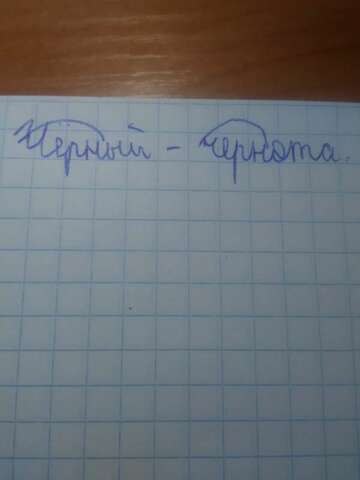 Чёрный - чернота.